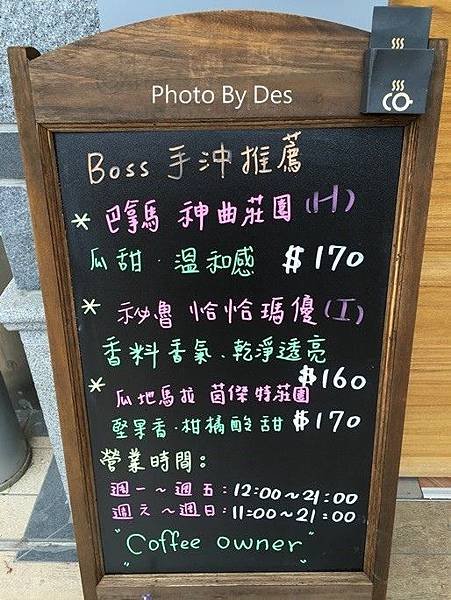 Photo By Des
CO
Boss 手沖推薦
* 巴拿馬 神曲莊園(H)
瓜甜.溫和感 $170
* 祕魯 恰恰瑪優(I)
香料香氣、乾淨透亮
$160
* 瓜地馬拉 茵傑特莊園
堅果香.柑橘酸甜 $170
營業時間:
週一~週五:12:00~21:00
週六~週日:11:00~21:00
"Coffee owner"